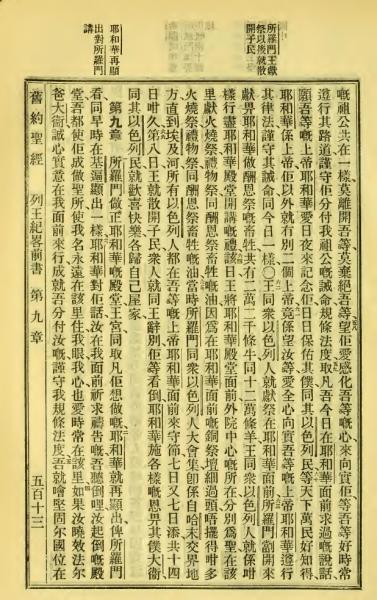 所羅門王獻
祭以後就散
開子民
耶和華再顯
出對所羅門
講
嘅祖公共在一樣莫離開吾等莫棄絕吾等望佢愛感化吾等嘅心來向實佢等吾等好時常
遵行其路道謹守佢分付我祖公嘅誡命規條法度取凡吾今日在耶和華面前求過嘅說話
願吾等嘅上帝耶和華愛日夜來記念佢日日保佑其僕同其以色列民等天下萬民好知得
耶和華係上帝佢以外就冇別二個上帝竟係望汝等愛全心向實吾等嘅上帝耶和華遵行
其律法謹守其誡命同今日一樣○王同衆以色列人就獻祭在耶和華面前所羅門劏開來
獻畀耶和華做酬恩祭嘅畜牲共有二萬二千條牛同十二萬條羊王同衆以色列人就係咁
樣行盡耶和華殿堂開講嘅禮該日王將耶和華殿堂面前外院中心嘅所在分別爲聖在該
里獻火燒祭禮物祭同酬恩祭畜牲嘅油因爲在耶和華面前嘅銅祭壇細過頭唔擺得咁多
火燒祭禮物祭同酬恩祭畜牲嘅油當時所羅門同衆以色列人大會集卽係自哈末交界地
方直到埃及河所有以色列人都在吾等嘅上帝耶和華面前來守節七日又七日添共十四
日咁久第八日王就散開子民衆人就同王辭別佢等看倒耶和華施各樣嘅恩畀其僕大衛
同其以色列民就歡喜快樂各歸自己屋家
第九章 所羅門做正耶和華嘅殿堂王宮同取凡佢想做嘅耶和華就再顯出俾所羅門
看同早時在基遍顯出一樣耶和華對佢話汝在我面前祈求禱告嘅吾聽倒哩汝起倒嘅殿
堂吾都使佢成做聖所使我名永遠在該里住我眼我心也愛時常在該里如果汝曉效法尔
爸大衛誠心實意在我面前來行成就吾分付汝嘅謹守我規條法度吾就噲堅固尔國位在
舊約聖經 列王紀畧前書 第九章 五百十三